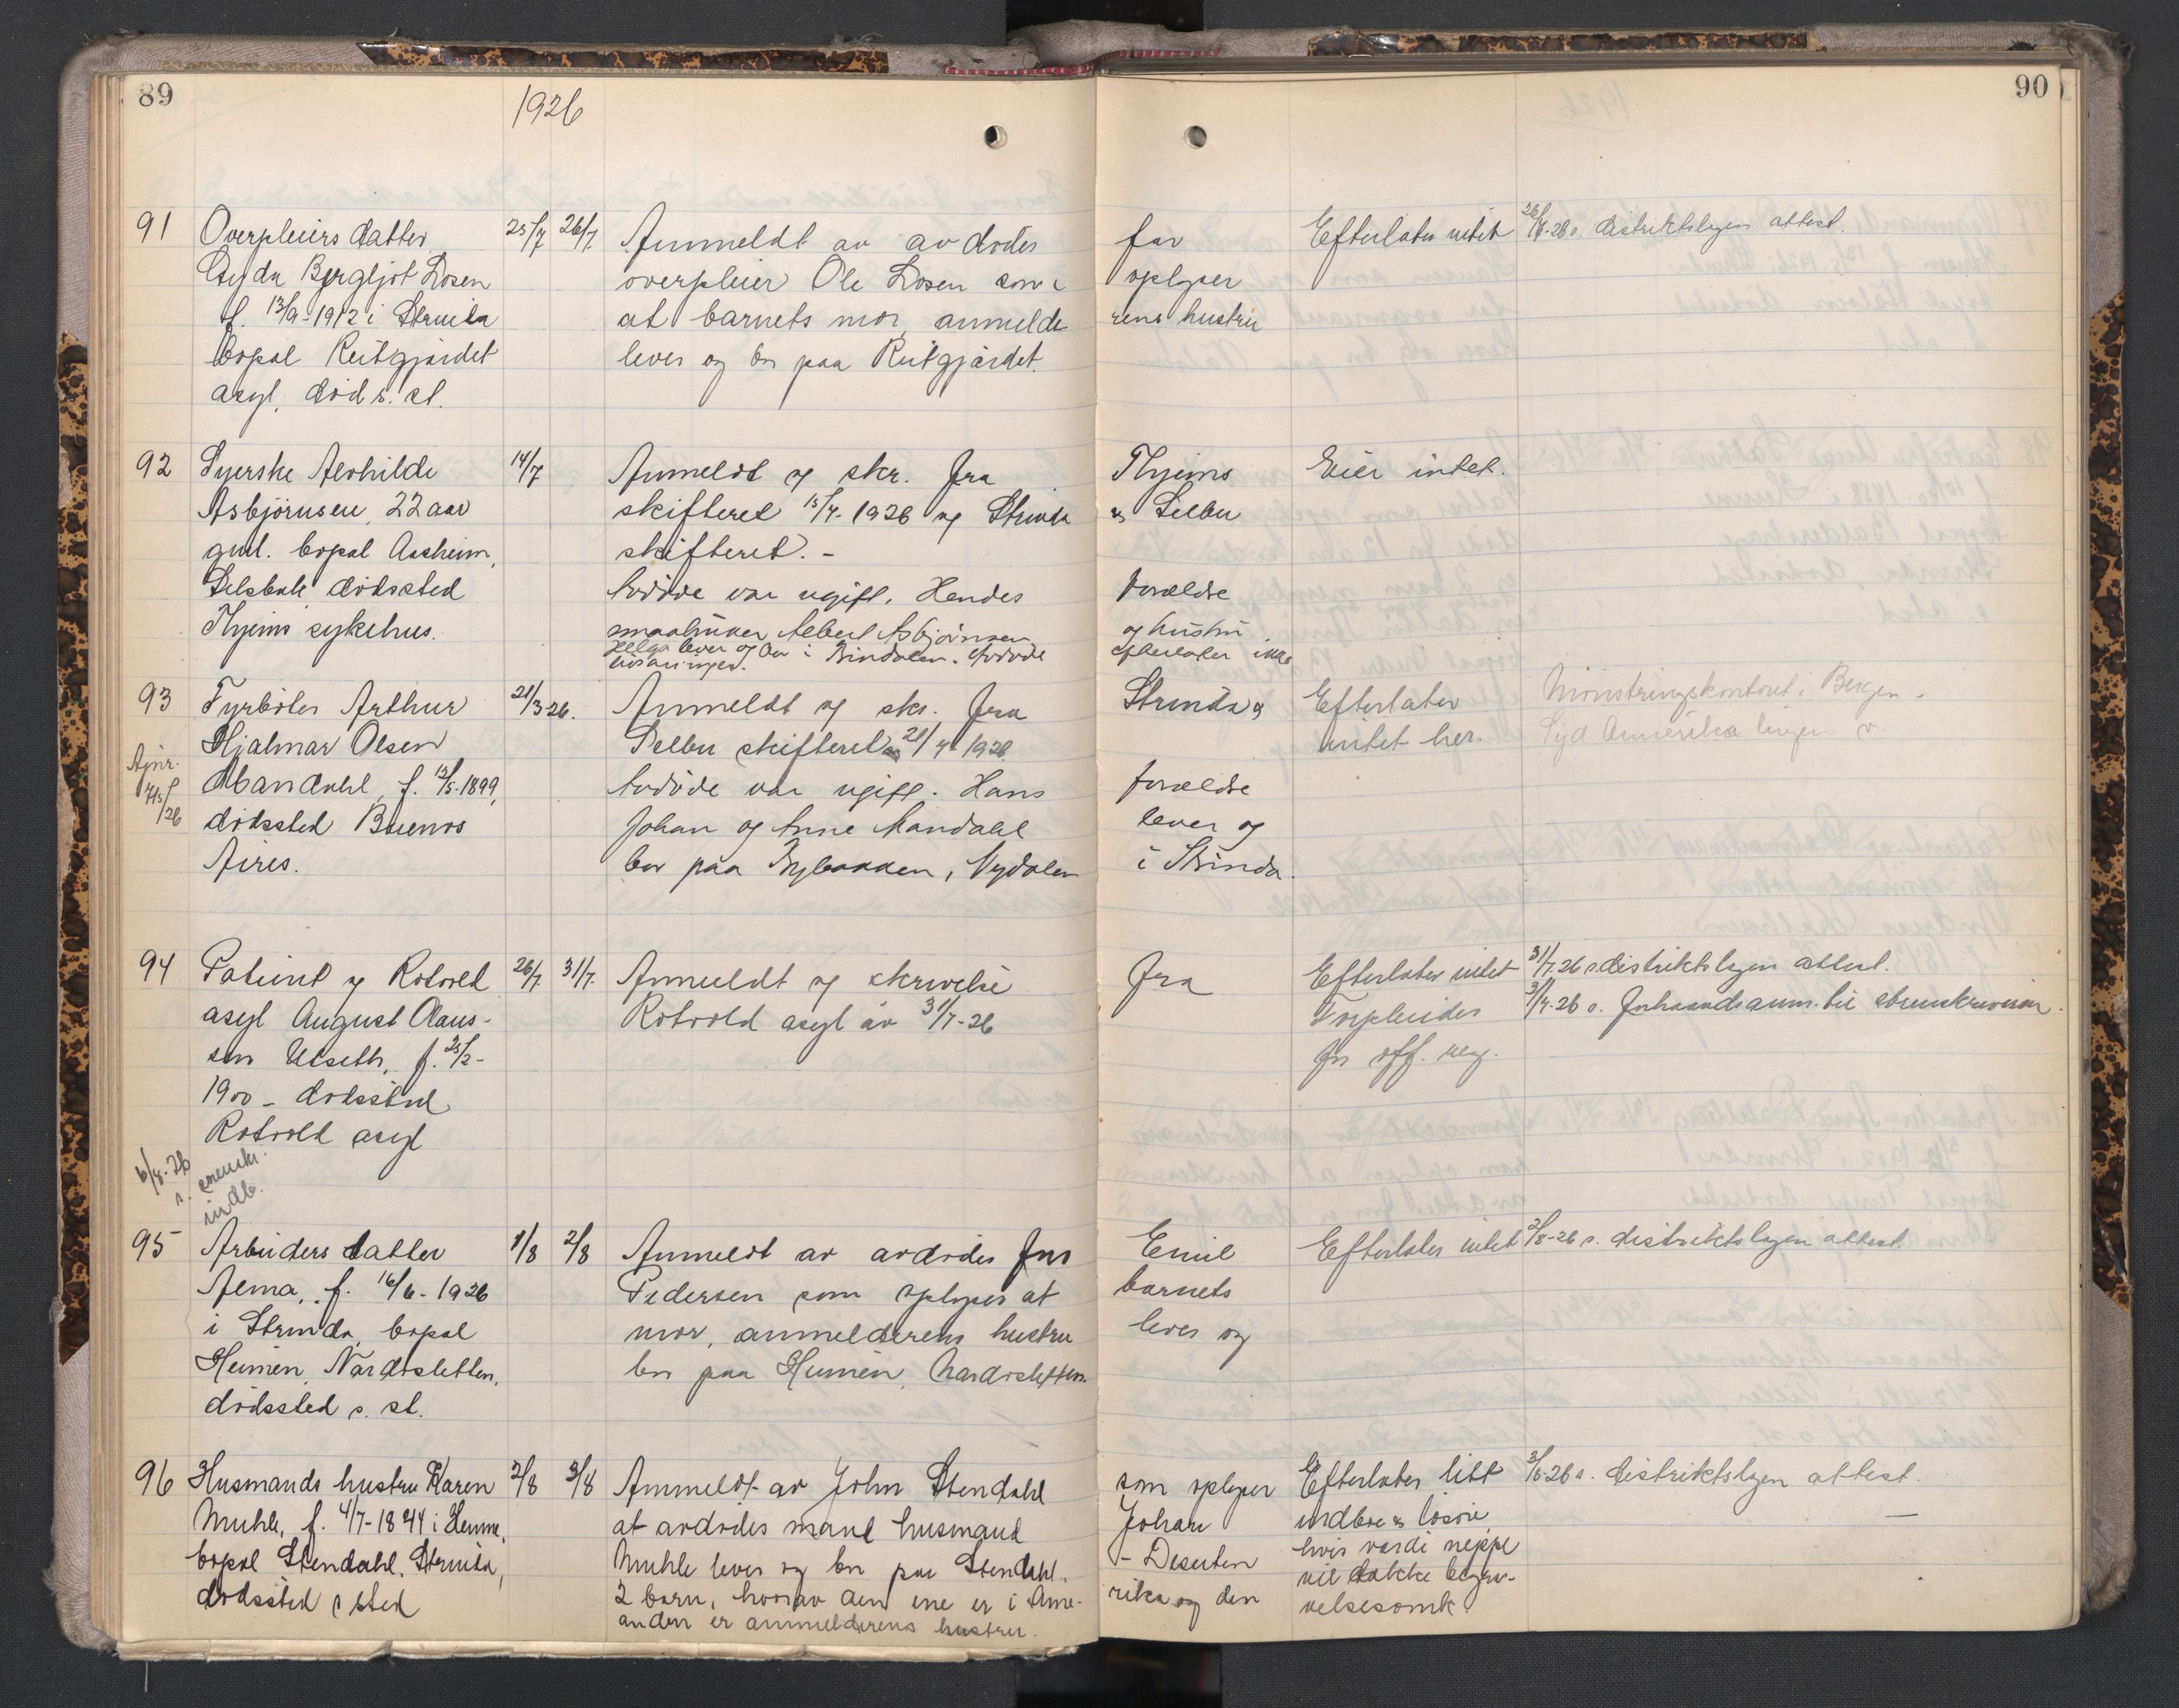 89
1926
90
91
Overpleiers datter
Gyda Bergljot Losen
f. 13/9-1912 i Strinda
bopæl Reitgjærdet
asyl, død s. st.
25/7 26/7.
Anmeldt av avdødes far
overpleier Ole Losen som oplyser
at barnets mor, anmelderens hustru
lever og bor paa Reitgjærdet.
Efterlater intet
26/7-26 s. distriktslægen attest.
92
Syerske Alvhilde
Asbjørnsen, 22 aar
gml. bopæl Aasheim,
Selsbak dødssted
Thjems sykehus.
14/7
Anmeldt og skr. fra Thjems
skifteret 15/7-1926 og Strinda og Selbu
skifteret. -
Avdøde var ugift. Hendes forældre
smaabruker Albert Asbjørnsen og hustru
Helga lever og bor i Bindalen. Avdøde efterlater ikke
livsarvinger.
Eier intet.
93
Ajnr.
/26
Fyrbøter Arthur
Hjalmar Olsen
Mandahl, f. 12/5-1899,
dødssted Buenos
Aires.
21/3-26.
Anmeldt og skr. fra Strinda og
Selbu skifteret 21/7-1926
Avdøde var ugift. Hans forældre
Johan og Anne Mandahl lever og
bor paa Nybakken, Nydalen i Strinda.
Efterlater
intet her.
Mønstringskontoret i Bergen -
Syd Amerika linjen
94
Patient ved Rotvold
asyl August Claus-
sen Utseth, f. 25/2-
1900 - dødssted
Rotvold asyl
26/7. 31/7.
Anmeldt ved skrivelse fra
Rotvold asyl av 31/7-26
Efterlater intet
Forpleiedes
for off. regn.
31/7.26 s. distriktslægen attest.
3/7-26 s. forhaandsanm. til
6/8-26
s.
indb.
95
Arbeiders datter
Alma, f. 16/6-1926
i Strinda, bopæl
Heimen, Nardosletten,
dødssted s. st.
1/8 2/8
Anmeldt av avdødes far Emil
Pedersen som oplyser at barnets
mor, anmelderens hustru lever og
bor paa Heimen, Nardosletten.
Efterlater intet
2/8-26 s. distriktslægen attest.
96
Husmands hustru Karen
Muhle, f. 4/7-1844 i Hemne,
bopæl Stendahl, Strinda,
dødssted s sted
2/8 3/8
Anmeldt av John Stendahl som oplyser
at avdødes mand husmand Johan
Muhle lever og bor paa Stendahl. - Desuten
2 barn, hvorav den ene er i Amerika og den
anden er anmelderens hustru.
Efterlater litt
indbo og løsøre,
hvis værdi neppe
vil dække begra-
velsesomk.
3/8-26 s. distriktslægen attest.